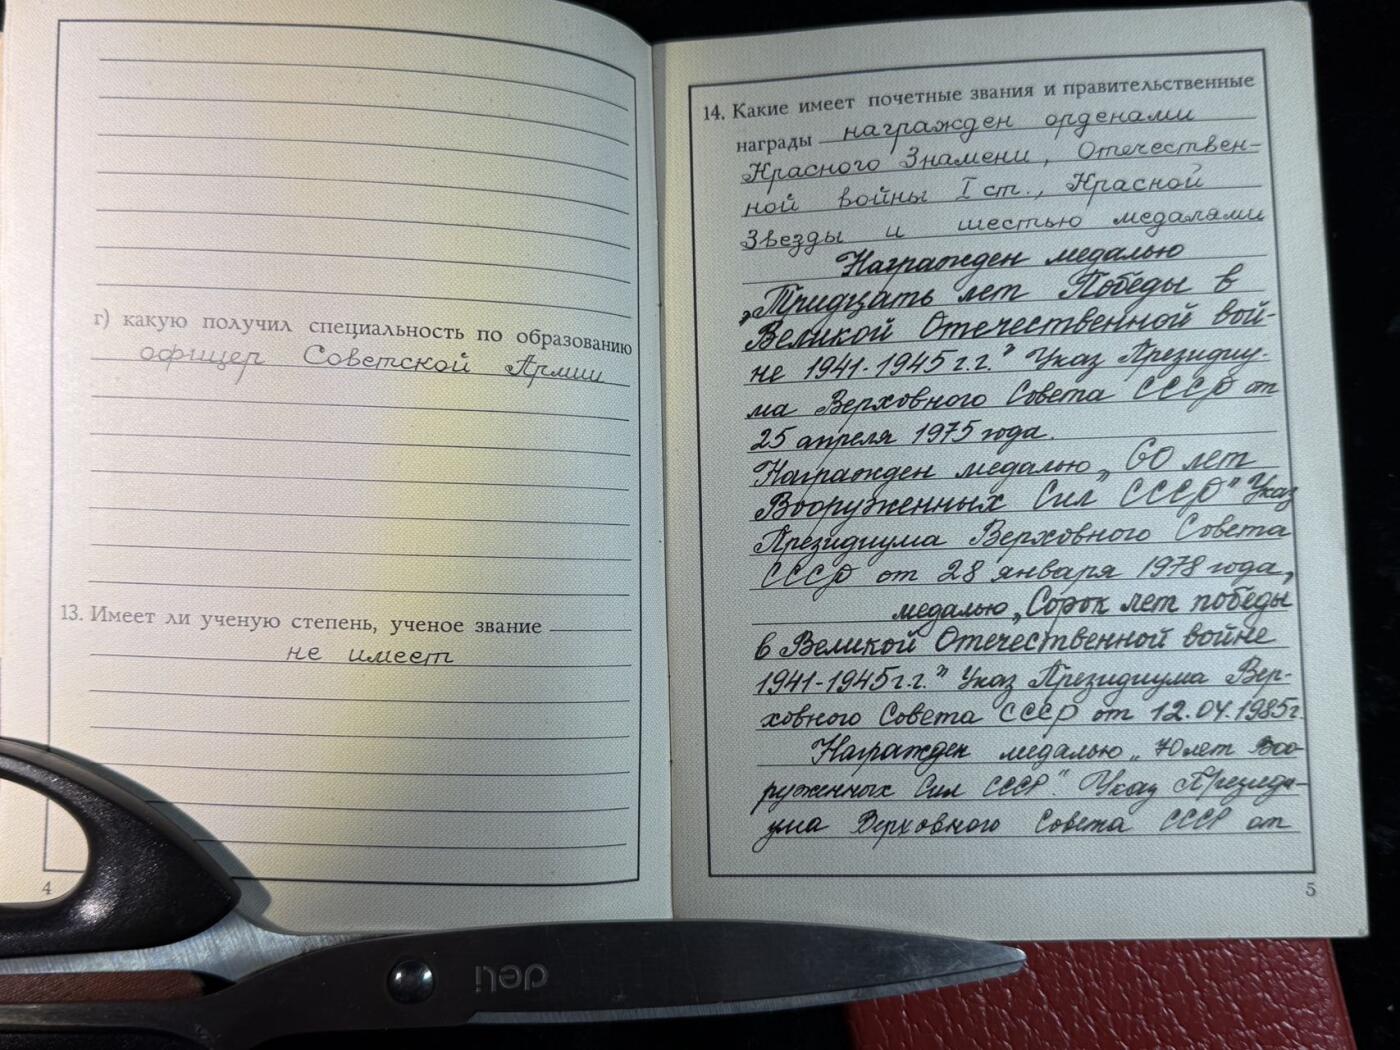 г) какую получил специальность по образованию
офицер Советской Армии
13. Имеет ли ученую степень, ученое звание
не имеет
4
14. Какие имеет почетные звания и правительственные
награды награжден орденами
Красного Знамени, Отечествен-
ной войны I ст., Красной
Звезды и шестью медалями
Награжден медалью
„Тридцать лет Победы в
Великой Отечественной вой-
не 1941-1945 г.г.” Указ Президиу-
ма Верховного Совета СССР от
25 апреля 1975 года.
Награжден медалью „60 лет
Вооруженных Сил СССР” Указ
Президиума Верховного Совета
СССР от 28 января 1978 года,
медалью „Сорок лет победы
в Великой Отечественной войне
1941-1945 г.г.” Указ Президиума Вер-
ховного Совета СССР от 12.04.1985г.
Награжден медалью „70 лет Воо-
руженных Сил СССР”. Указ Президи-
ума Верховного Совета СССР от
5
deli